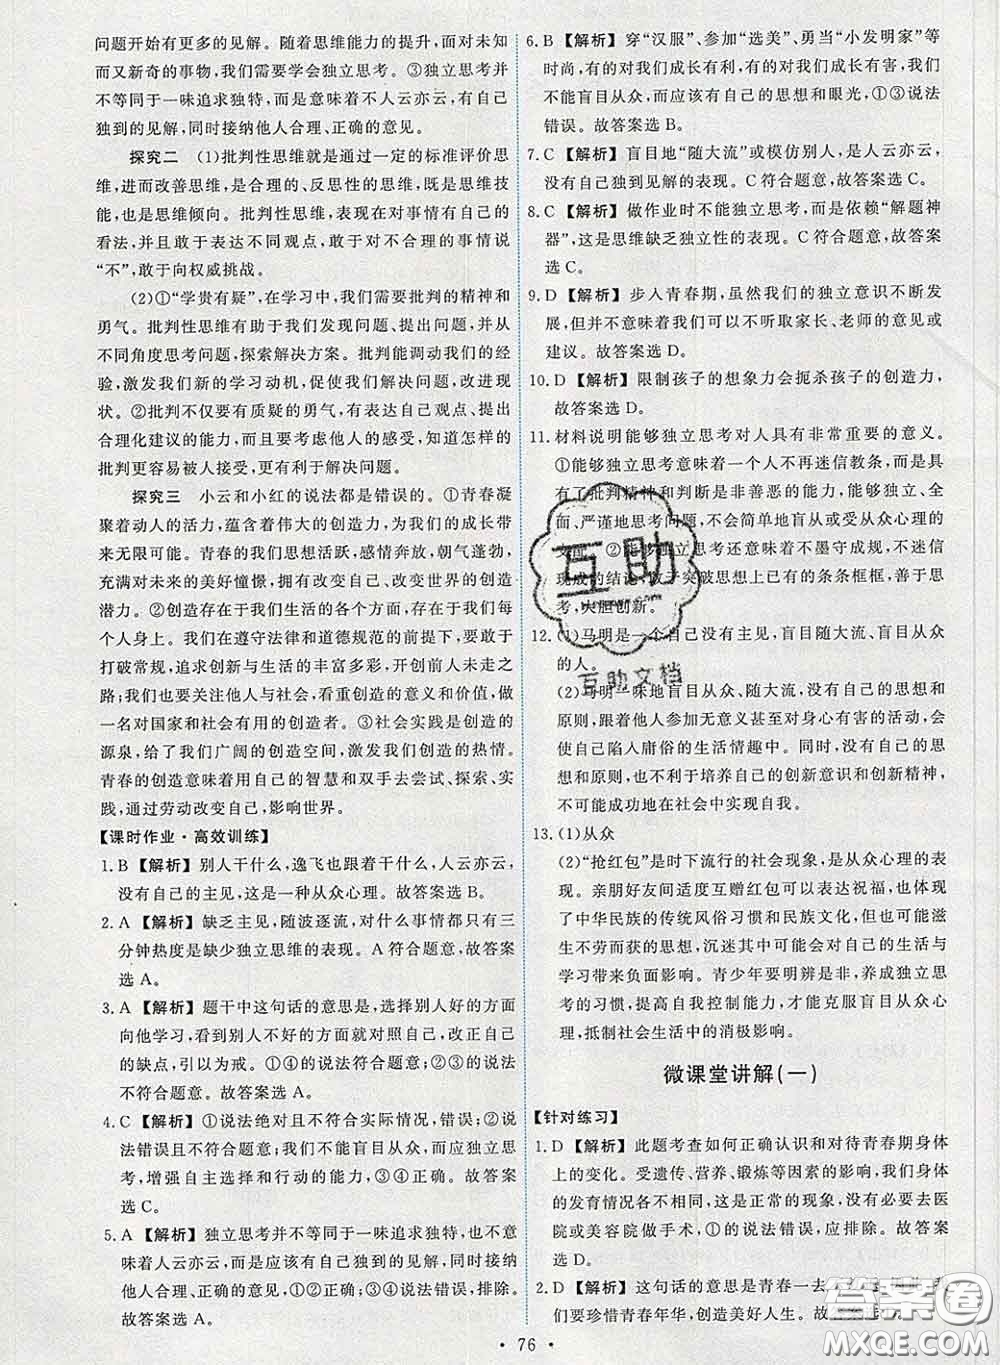 问题开始有更多的见解。随着思维能力的提升,面对未知
而又新奇的事物,我们需要学会独立思考。③独立思考并
不等同于一味追求独特,而是意味着不人云亦云,有自己
独到的见解,同时接纳他人合理、正确的意见。
探究二 (1)批判性思维就是通过一定的标准评价思
维,进而改善思维,是合理的、反思性的思维,既是思维技
能,也是思维倾向。批判性思维,表现在对事情有自己的
看法,并且敢于表达不同观点,敢于对不合理的事情说
“不”,敢于向权威挑战。
(2)①“学贵有疑”,在学习中,我们需要批判的精神和
勇气。批判性思维有助于我们发现问题、提出问题,并从
不同角度思考问题,探索解决方案。批判能调动我们的经
验,激发我们新的学习动机,促使我们解决问题,改进现
状。②批判不仅要有质疑的勇气,有表达自己观点、提出
合理化建议的能力,而且要考虑他人的感受,知道怎样的
批判更容易被人接受,更有利于解决问题。
探究三 小云和小红的说法都是错误的。①青春凝
聚着动人的活力,蕴含着伟大的创造力,为我们的成长带
来无限可能。青春的我们思想活跃,感情奔放,朝气蓬勃,
充满对未来的美好憧憬,拥有改变自己、改变世界的创造
潜力。②创造存在于我们生活的各个方面,体现在我们每
个人身上。我们在遵守法律和道德规范的前提下,要敢于
打破常规,追求创新与生活的丰富多彩,开创前人未走之
路;我们也要关注他人与社会,看重创造的意义和价值,做
一名对国家和社会有用的创造者。③社会实践是创造的
源泉,给了我们广阔的创造空间,激发我们创造的热情。
青春的创造意味着用自己的智慧和双手去尝试、探索、实
践,通过劳动改变自己,影响世界。
【课时作业·高效训练】
1. B 【解析】 别人干什么,逸飞也跟着干什么,人云亦云,
没有自己的主见,这是一种从众心理。故答案选 B。
2. A 【解析】 缺乏主见,随波逐流,对什么事情都只有三
分钟热度是缺少独立思维的表现。A 符合题意。故答案
选 A。
3. A 【解析】 题干中这句话的意思是,选择别人好的方面
向他学习,看到别人不好的方面就对照自己,改正自己
的缺点,引以为戒。①④的说法符合题意;②③的说法
不符合题意。故答案选 A。
4. C 【解析】 ①说法绝对且不符合实际情况,错误;②说
法错误且不符合题意;我们不能盲目从众,而应独立思
考,增强自主选择和行动的能力,③④正确。故答案
选 C。
5. A 【解析】 独立思考并不等同于一味追求独特,也不意
味着人云亦云,而是应该有自己独到的见解,同时接纳
他人合理、正确的意见。①②③符合题意;④错误,排除。
故答案选 A。
6. B 【解析】 穿“汉服”、参加“选美”、勇当“小发明家”等
时尚,有的对我们成长有利,有的对我们成长有害,我们
不能盲目从众,而应该有自己的思想和眼光,①③说法
错误。故答案选 B。
7. C 【解析】 盲目地“随大流”或模仿别人,是人云亦云,
没有自己独到见解的表现。C 符合题意,故答案选 C。
8. C 【解析】 做作业时不能独立思考,而是依赖“解题神
器”,这是思维缺乏独立性的表现。C 符合题意,故答案
选 C。
9. D 【解析】 步入青春期,虽然我们的独立意识不断发
展,但并不意味着我们可以不听取家长、老师的意见或
建议。故答案选 D。
10. D 【解析】 限制孩子的想象力会扼杀孩子的创造力。
故答案选 D。
11. 材料说明能够独立思考对人具有非常重要的意义。
①能够独立思考意味着一个人不再迷信教条,而是具
有了批判精神和判断是非善恶的能力,能够独立、全
面、严谨地思考问题,不会简单地盲从或受从众心理的
支配。②能够独立思考还意味着不墨守成规,不依赖
现成的结论,敢于突破思想上已有的条条框框,善于思
考,大胆创新。
12. (1)马明是一个自己没有主见,盲目随大流、盲目从众
的人。
(2)马明一味地盲目从众、随大流,没有自己的思想和
原则,跟着他人参加无意义甚至对身心有害的活动,使
自己陷入庸俗的生活情趣中。同时,没有自己的思
想和原则,也不利于培养自己的创新意识和创新精神,不
可能成功地在社会中实现自我。
13. (1)从众
(2)“抢红包”是时下流行的社会现象,是从众心理的表
现。亲朋好友间适度互赠红包可以表达祝福,也体现
了中华民族的传统风俗习惯和民族文化,但可能会滋
生不劳而获的思想,沉迷其中可能会对自己的生活与
学习带来负面影响。青少年要明辨是非,养成独立思
考的习惯,提高自我控制能力,才能克服盲目从众心
理,抵制社会生活中的消极影响。
微课堂讲解(一)
【针对练习】
1. D 【解析】 此题考查如何正确认识和对待青春期身体
上的变化。受遗传、营养、锻炼等因素的影响,我们身体
的发育情况各不相同,这是正常的现象,没有必要去医
院或美容院做手术,①的说法错误,应排除。故答案
选 D。
2. D 【解析】 这句话的意思是青春一去
们要珍惜青春年华,创造美好人生。故答案选
互助
互助文档
答案圈
MXQE.COM
· 76 ·